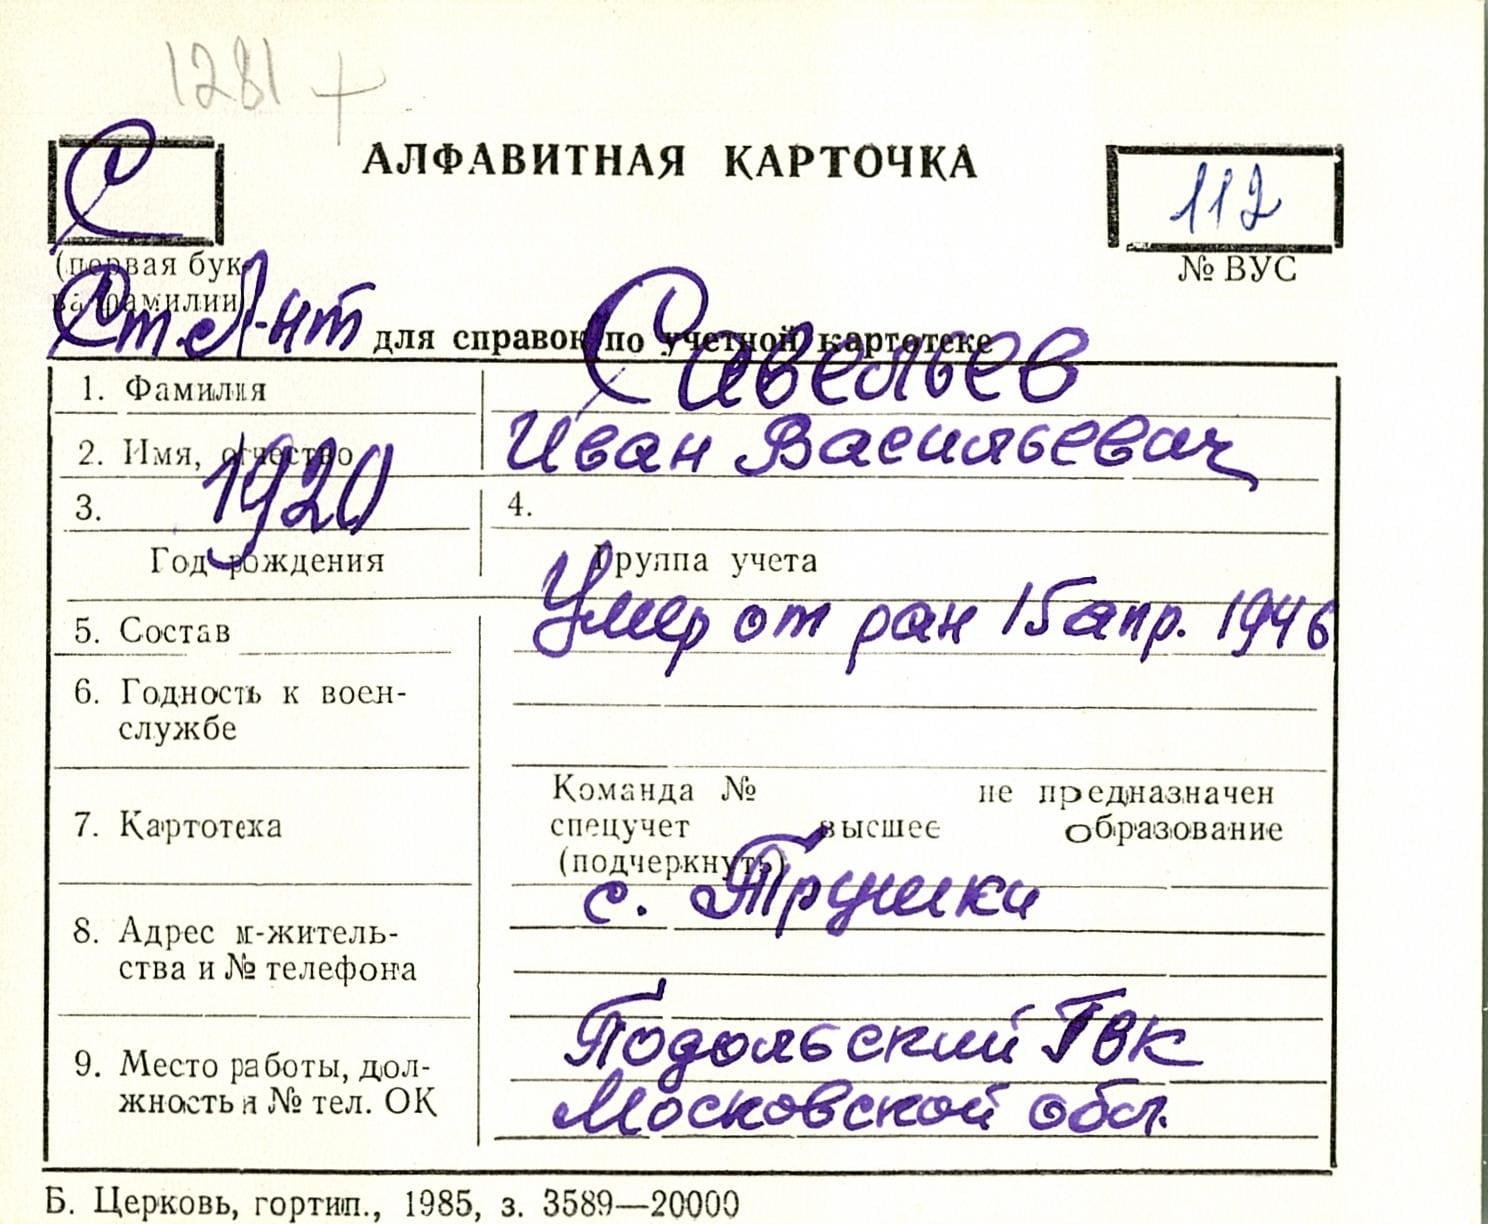 1281 +
С
АЛФАВИТНАЯ КАРТОЧКА
112
(первая бук-
ва фамилии)
№ ВУС
Ст. л-нт
для справок по учетной картотеке
1. Фамилия
Савельев
2. Имя, отчество
Иван Васильевич
3. 1920
4.
Год рождения
Группа учета
5. Состав
Умер от ран 15 апр. 1946
6. Годность к воен-
службе
7. Картотека
Команда № не предназначен
спецучет высшее образование
(подчеркнуть)
с. Трушки
8. Адрес м-житель-
ства и № телефона
9. Место работы, дол-
жность и № тел. ОК
Подольский ГВК
Московской обл.
Б. Церковь, гортип., 1985, з. 3589—20000